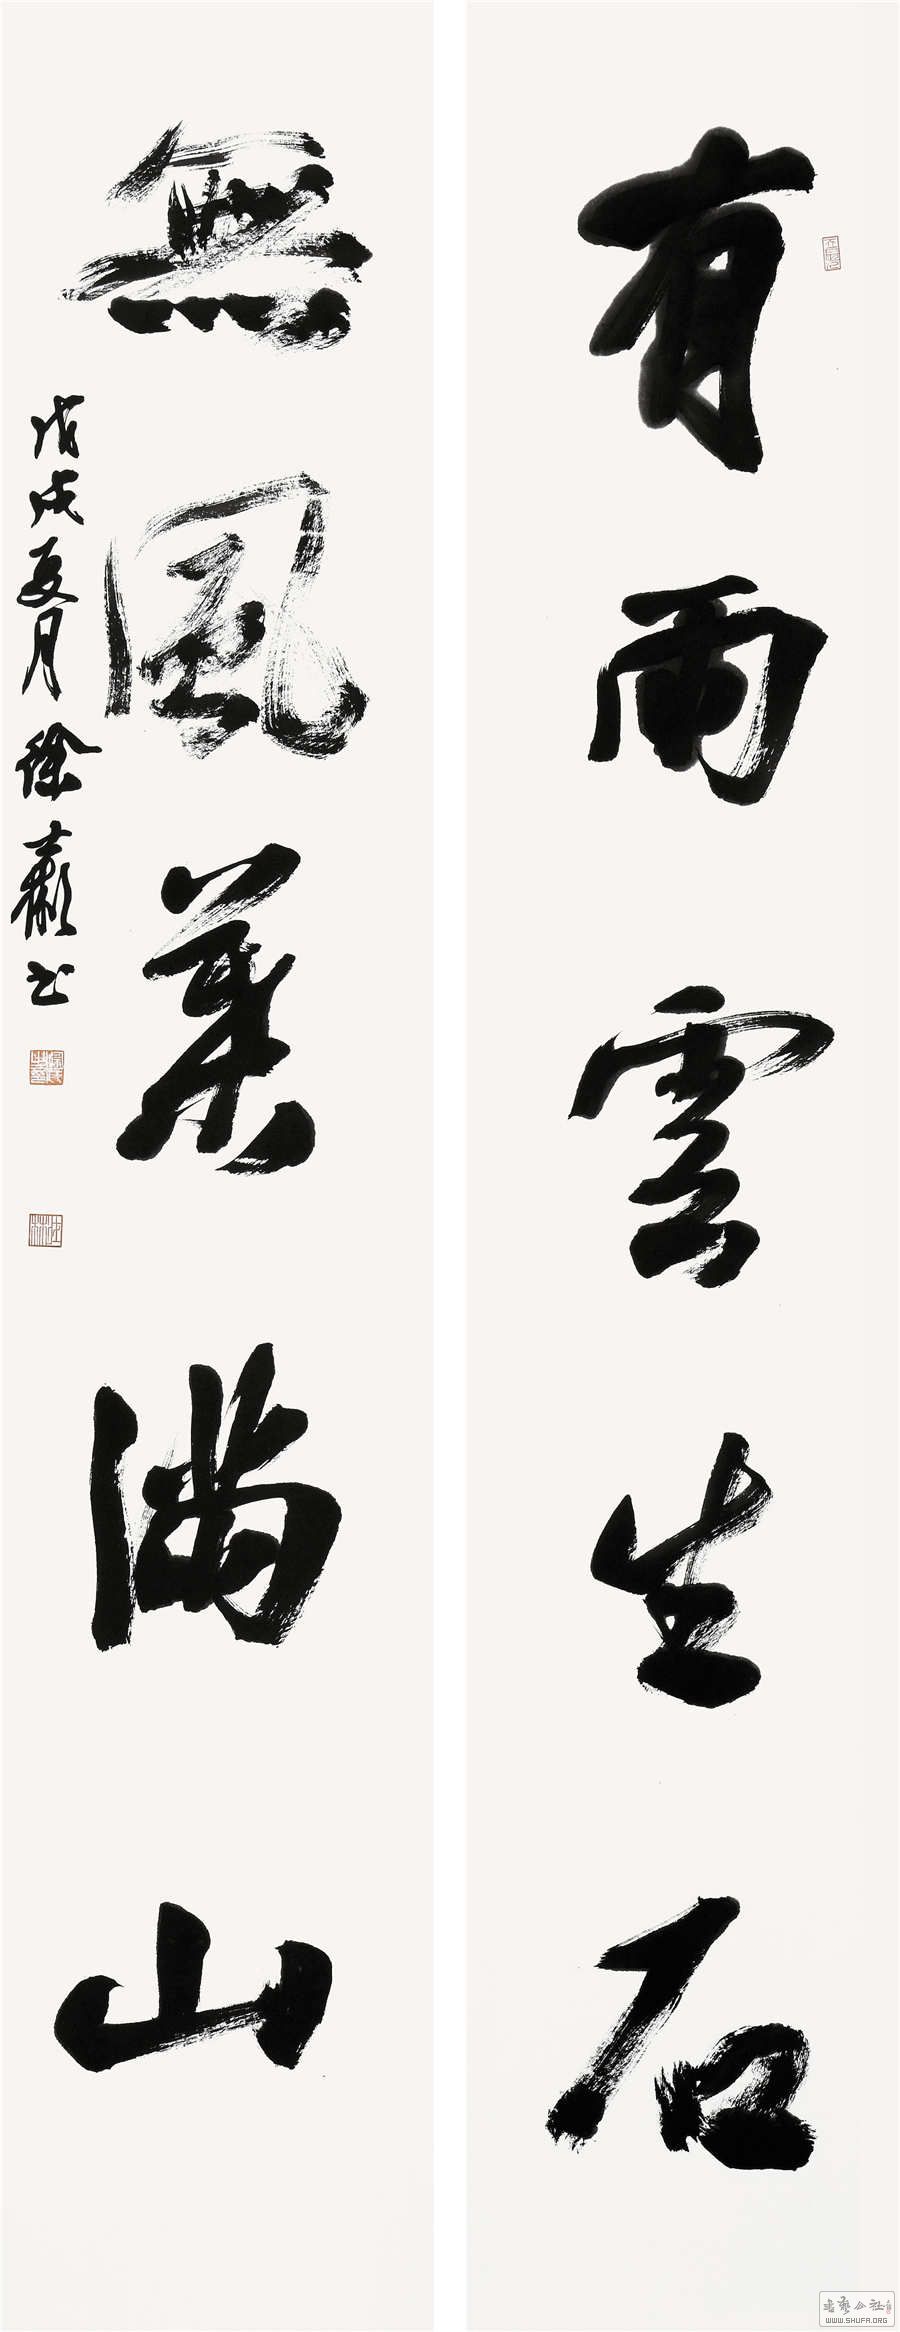 有雨雲生石
無風葉滿山
戊戌夏月徐
書
書藝公社
WWW.SHUFA.ORG